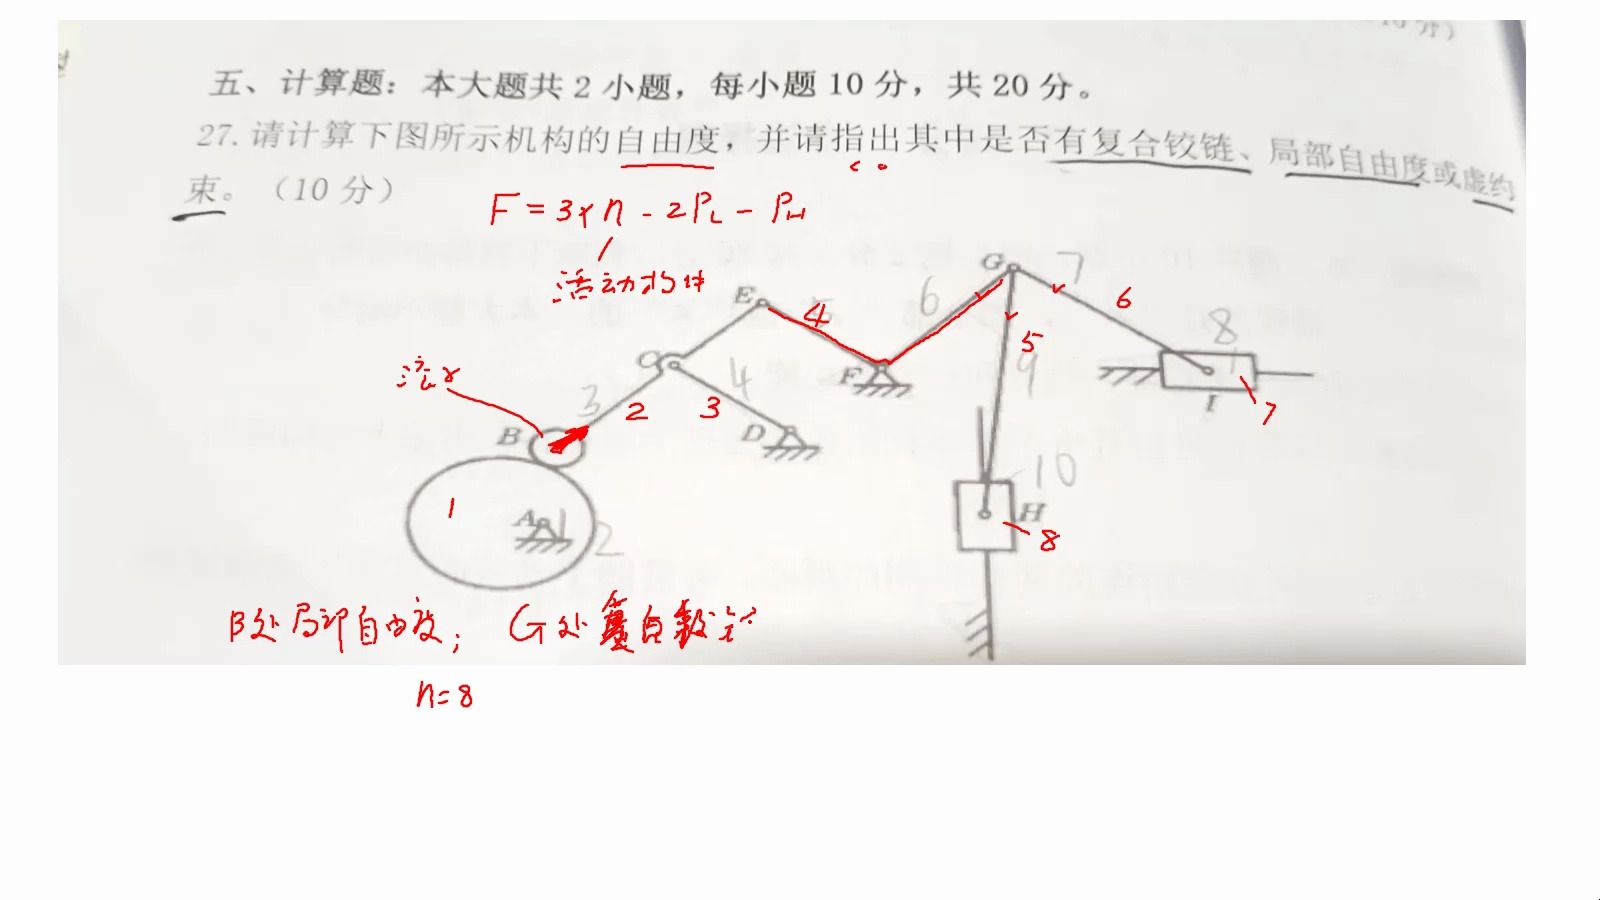 五、计算题：本大题共 2 小题，每小题 10 分，共 20 分。
27. 请计算下图所示机构的自由度，并请指出其中是否有复合铰链、局部自由度或虚约
束。（10 分）
F = 3×n - 2PL - PH
活动构件
G 7
E 6 6
4 8
C 5
F 9
3 4 I 7
2 3
B D
10
1 A 1 H
2 8
B处局部自由度； G处复合铰链
n=8